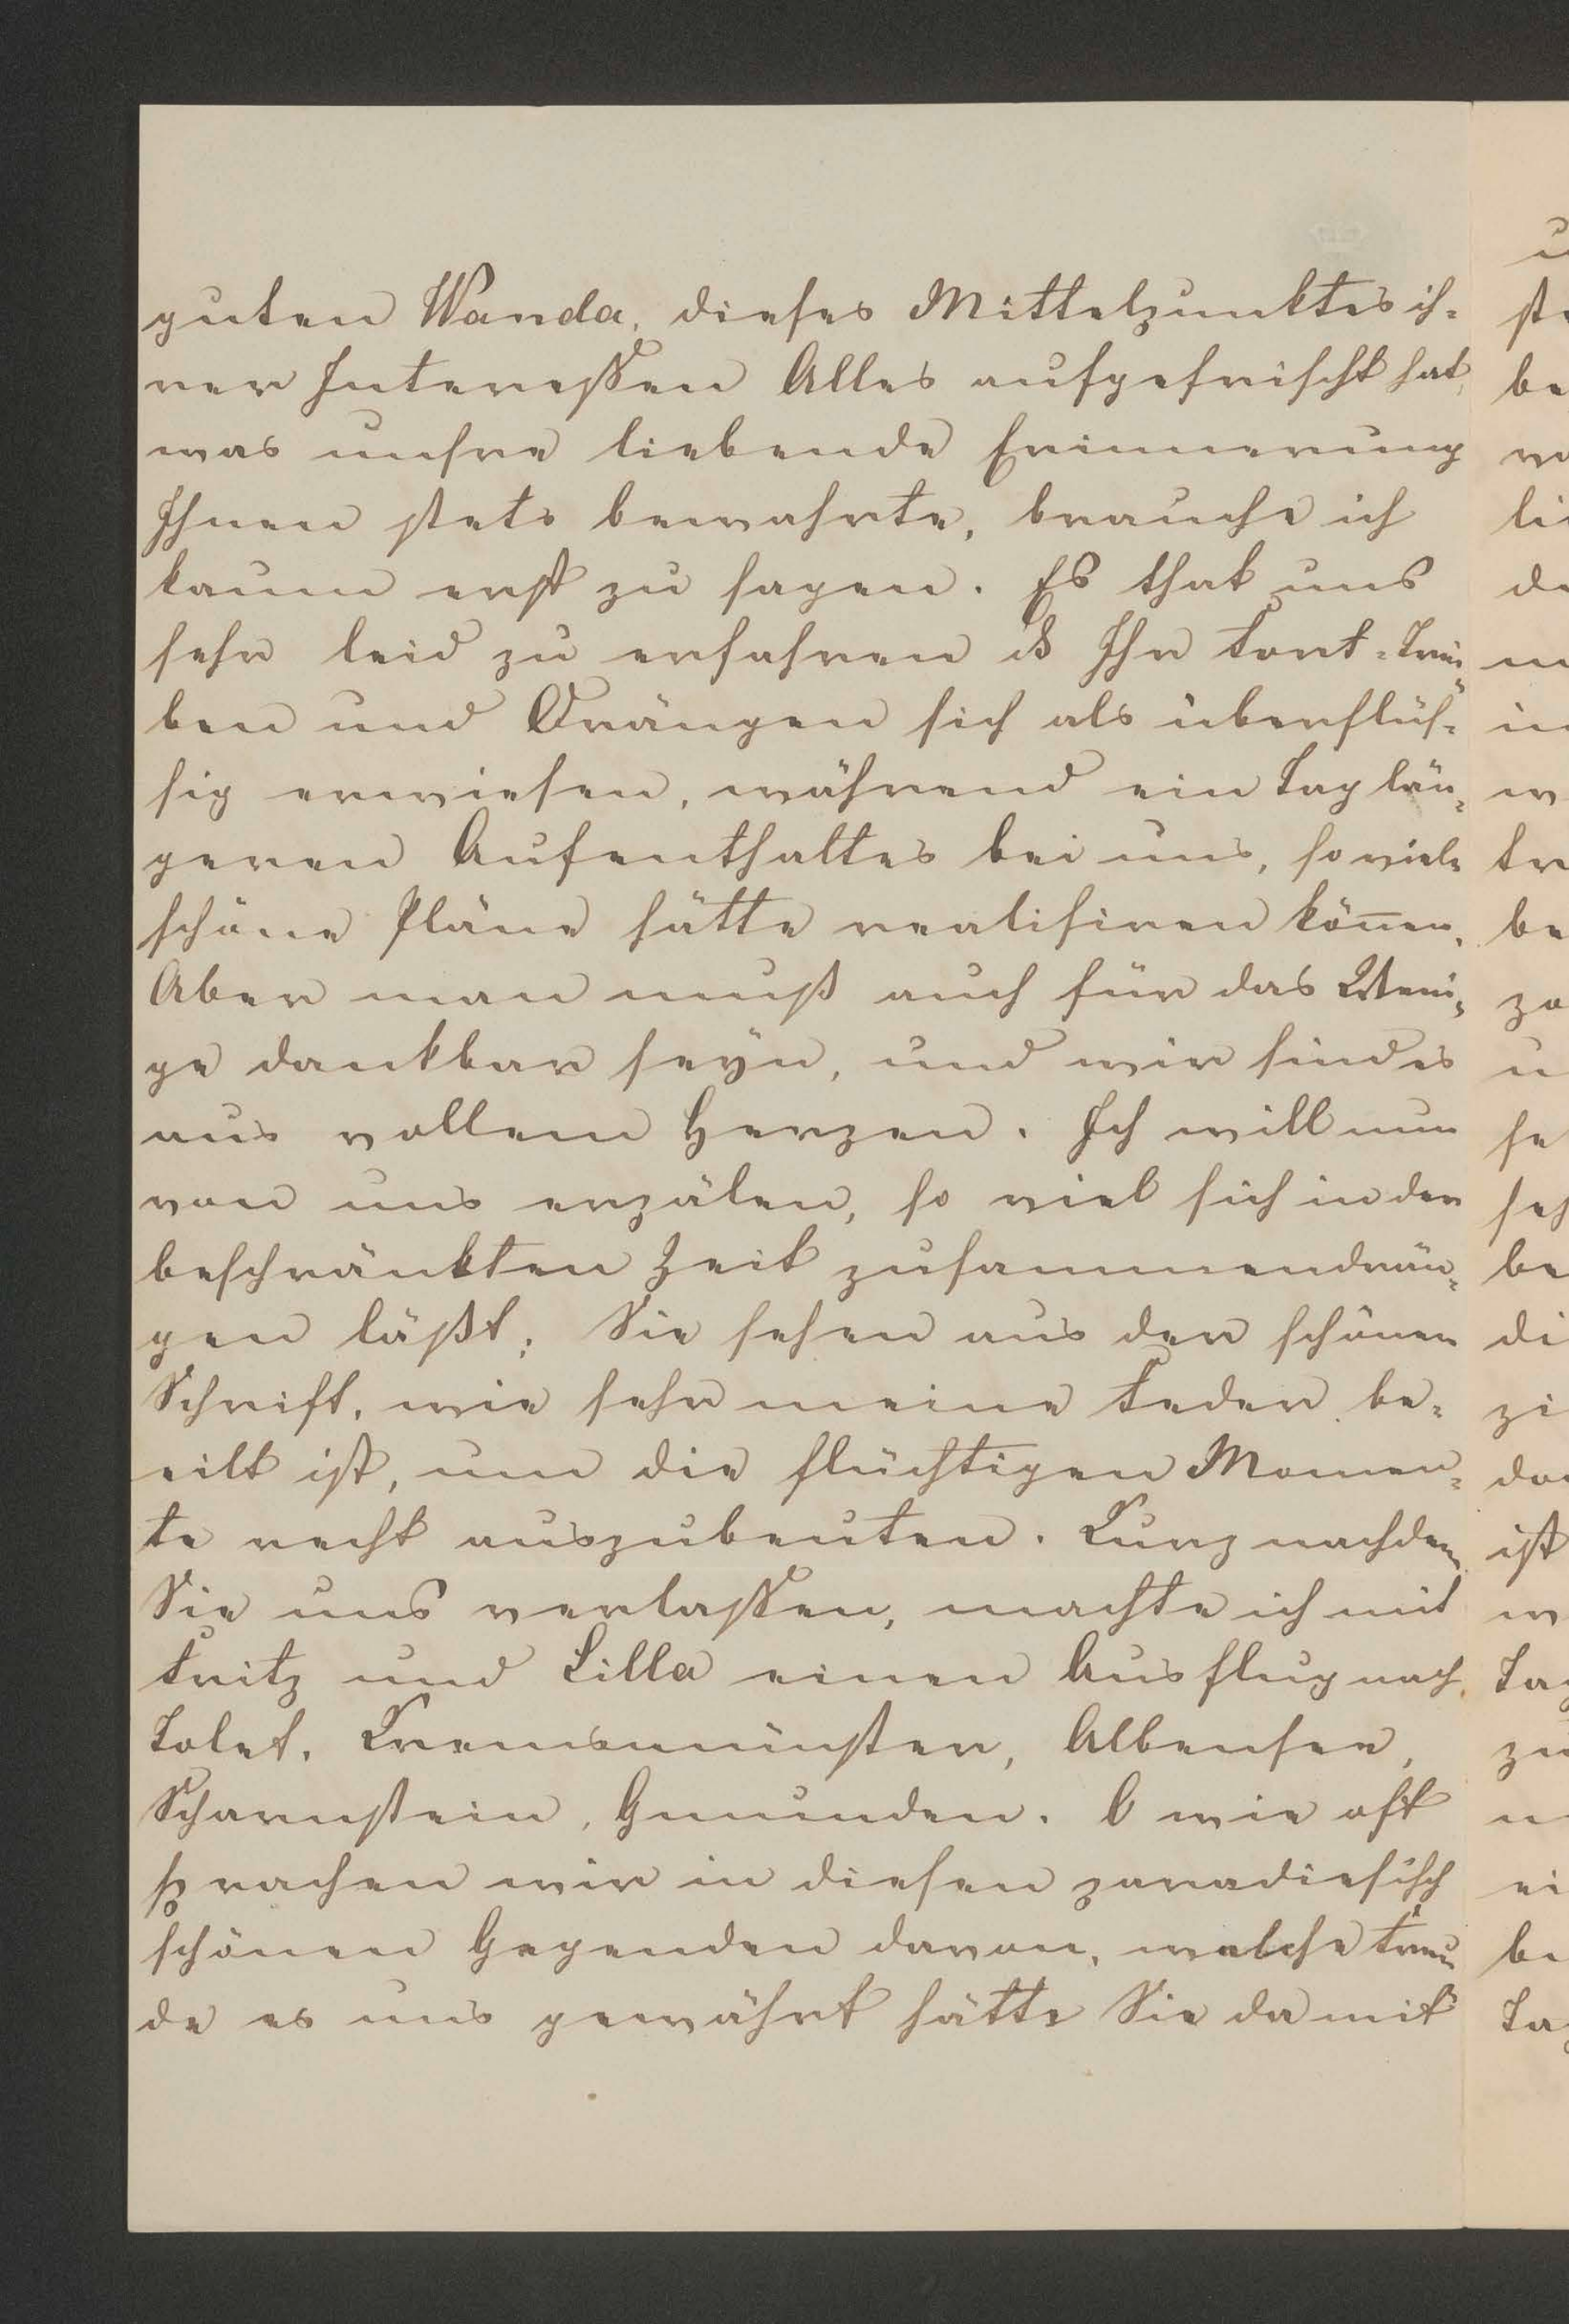 guten Wanda, dieses Mittelpunktes ih-
rer Interessen Alles aufgefrischt hat,
was unsre liebende Erinnerung
Ihnen stets bewahrte, brauche ich
kaum erst zu sagen. Es that uns
sehr leid zu erfahren ds Ihr Fort-Trei-
ben und Drängen sich als überflüs-
sig erwiesen, während ein Tag län-
geren Aufenthaltes bei uns, so viele
schöne Pläne hätte realisiren können.
Aber man muß auch für das Weni-
ge dankbar seyn, und wir sind es
aus vollem Herzen. Ich will nun
von uns erzälen, so viel sich in der
beschränkten Zeit zusammendrän-
gen läßt; Sie sehen aus der schönen
Schrift, wie sehr meine Feder be-
eilt ist, um die flüchtigen Momen-
te recht auszubeuten. Kurz nachdem
Sie uns verlassen, machte ich mit
Fritz und Lilla einen Ausflug nach
Tolet, Kremsmünster, Albensee,
Scharnstein, Gmunden. O wie oft
sprachen wir in diesen paradiesisch
schönen Gegenden davon, welche Freu-
de es uns gewährt hätte Sie da mit